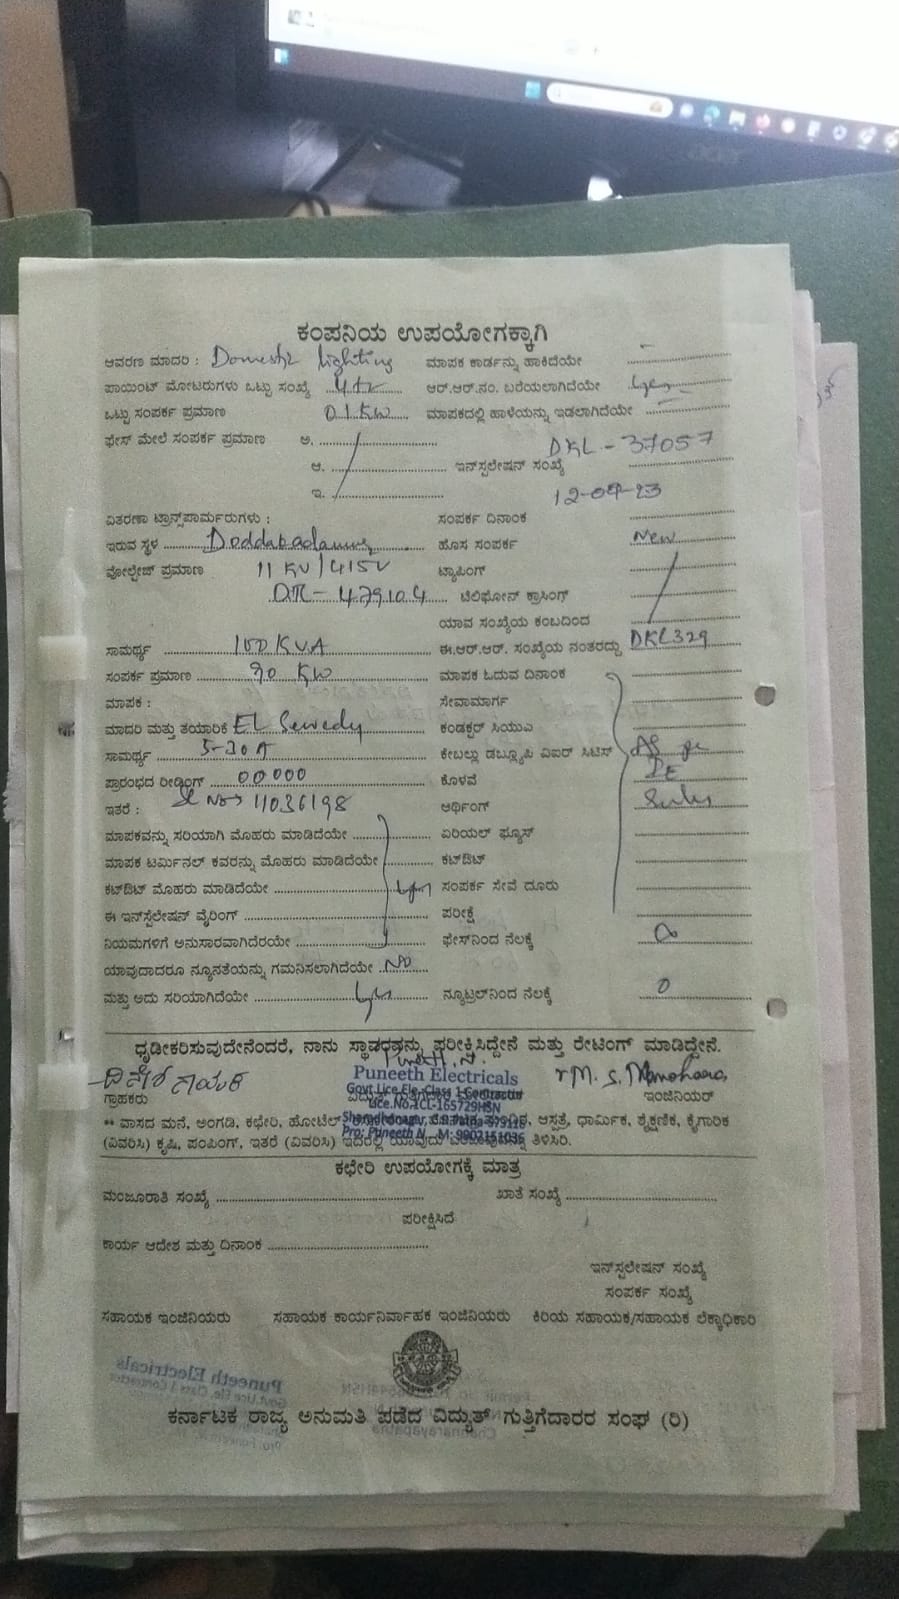 ಕಂಪನಿಯ ಉಪಯೋಗಕ್ಕಾಗಿ
ಆವರಣ ಮಾದರಿ : Domestic lighting ಮಾಪಕ ಕಾರ್ಡನ್ನು ಹಾಕಿದೆಯೇ
ಪಾಯಿಂಟ್ ಮೋಟರುಗಳು ಒಟ್ಟು ಸಂಖ್ಯೆ ಆರ್.ಆರ್.ನಂ. ಬರೆಯಲಾಗಿದೆಯೇ yes
ಒಟ್ಟು ಸಂಪರ್ಕ ಪ್ರಮಾಣ 01KW ಮಾಪಕದಲ್ಲಿ ಹಾಳೆಯನ್ನು ಇಡಲಾಗಿದೆಯೇ
ಫೇಸ್ ಮೇಲೆ ಸಂಪರ್ಕ ಪ್ರಮಾಣ ಅ.
DKL-37057
ಆ. ಇನ್‌ಸ್ಟಲೇಷನ್ ಸಂಖ್ಯೆ
ಇ.
ವಿತರಣಾ ಟ್ರಾನ್ಸ್‌ಪಾರ್ಮರುಗಳು : ಸಂಪರ್ಕ ದಿನಾಂಕ
ಇರುವ ಸ್ಥಳ ಹೊಸ ಸಂಪರ್ಕ New
ವೋಲ್ಟೇಜ್ ಪ್ರಮಾಣ 11 KV/415V ಟ್ಯಾಪಿಂಗ್
ಟೆಲಿಫೋನ್ ಕ್ರಾಸಿಂಗ್
ಯಾವ ಸಂಖ್ಯೆಯ ಕಂಬದಿಂದ
ಸಾಮರ್ಥ್ಯ 100 KVA ಈ.ಆರ್.ಆರ್. ಸಂಖ್ಯೆಯ ನಂತರದ್ದು DKL329
ಸಂಪರ್ಕ ಪ್ರಮಾಣ 90 KW ಮಾಪಕ ಓದುವ ದಿನಾಂಕ
ಮಾಪಕ : ಸೇವಾಮಾರ್ಗ
ಮಾದರಿ ಮತ್ತು ತಯಾರಿಕೆ EL Sewedy ಕಂಡಕ್ಟರ್ ಸಿಯುಎ
ಸಾಮರ್ಥ್ಯ 5-30A ಕೇಬಲ್ಲು ಡಬ್ಲ್ಯೂಪಿ ವಿಐರ್ ಸಿಟಿಸ್ As per
ಪ್ರಾರಂಭದ ರೀಡಿಂಗ್ 00000 ಕೊಳವೆ IE
ಇತರೆ : Sl No 11036198 ಆರ್ಥಿಂಗ್ Rules
ಮಾಪಕವನ್ನು ಸರಿಯಾಗಿ ಮೊಹರು ಮಾಡಿದೆಯೇ ಏರಿಯಲ್ ಫ್ಯೂಸ್
ಮಾಪಕ ಟರ್ಮಿನಲ್ ಕವರನ್ನು ಮೊಹರು ಮಾಡಿದೆಯೇ ಕಟ್‌ಔಟ್
ಕಟ್‌ಔಟ್ ಮೊಹರು ಮಾಡಿದೆಯೇ yes ಸಂಪರ್ಕ ಸೇವೆ ದೂರು
ಈ ಇನ್‌ಸ್ಟೆಲೇಷನ್ ವೈರಿಂಗ್ ಪರೀಕ್ಷೆ
ನಿಯಮಗಳಿಗೆ ಅನುಸಾರವಾಗಿದೆರಯೇ ಫೇಸ್‌ನಿಂದ ನೆಲಕ್ಕೆ
ಯಾವುದಾದರೂ ನ್ಯೂನತೆಯನ್ನು ಗಮನಿಸಲಾಗಿದೆಯೇ No
ಮತ್ತು ಅದು ಸರಿಯಾಗಿದೆಯೇ yes ನ್ಯೂಟ್ರಲ್‌ನಿಂದ ನೆಲಕ್ಕೆ 0
ಧೃಡೀಕರಿಸುವುದೇನೆಂದರೆ, ನಾನು ಸ್ಥಾವರವನ್ನು ಪರೀಕ್ಷಿಸಿದ್ದೇನೆ ಮತ್ತು ರೇಟಿಂಗ್ ಮಾಡಿದ್ದೇನೆ.
Puneeth Electricals
Govt Lice Ele. Class 1 Contractor
ಗ್ರಾಹಕರು ಇಂಜಿನಿಯರ್
Lice.No.1CL-165729HSN
** ವಾಸದ ಮನೆ, ಅಂಗಡಿ, ಕಛೇರಿ, ಹೋಟೆಲ್ ಆಸ್ಪತ್ರೆ, ಧಾರ್ಮಿಕ, ಶೈಕ್ಷಣಿಕ, ಕೈಗಾರಿಕ
(ವಿವರಿಸಿ) ಕೃಷಿ, ಪಂಪಿಂಗ್, ಇತರೆ (ವಿವರಿಸಿ) ಇದರಲ್ಲಿ ಯಾವುದು ತಿಳಿಸಿರಿ.
Pro: Puneeth N M: 9902151036
ಕಛೇರಿ ಉಪಯೋಗಕ್ಕೆ ಮಾತ್ರ
ಮಂಜೂರಾತಿ ಸಂಖ್ಯೆ ಖಾತೆ ಸಂಖ್ಯೆ
ಪರೀಕ್ಷಿಸಿದೆ
ಕಾರ್ಯ ಆದೇಶ ಮತ್ತು ದಿನಾಂಕ
ಇನ್‌ಸ್ಟಲೇಷನ್ ಸಂಖ್ಯೆ
ಸಂಪರ್ಕ ಸಂಖ್ಯೆ
ಸಹಾಯಕ ಇಂಜಿನಿಯರು ಸಹಾಯಕ ಕಾರ್ಯನಿರ್ವಾಹಕ ಇಂಜಿನಿಯರು ಕಿರಿಯ ಸಹಾಯಕ/ಸಹಾಯಕ ಲೆಕ್ಕಾಧಿಕಾರಿ
ಕರ್ನಾಟಕ ರಾಜ್ಯ ಅನುಮತಿ ಪಡೆದ ವಿದ್ಯುತ್ ಗುತ್ತಿಗೆದಾರರ ಸಂಘ (ರಿ)